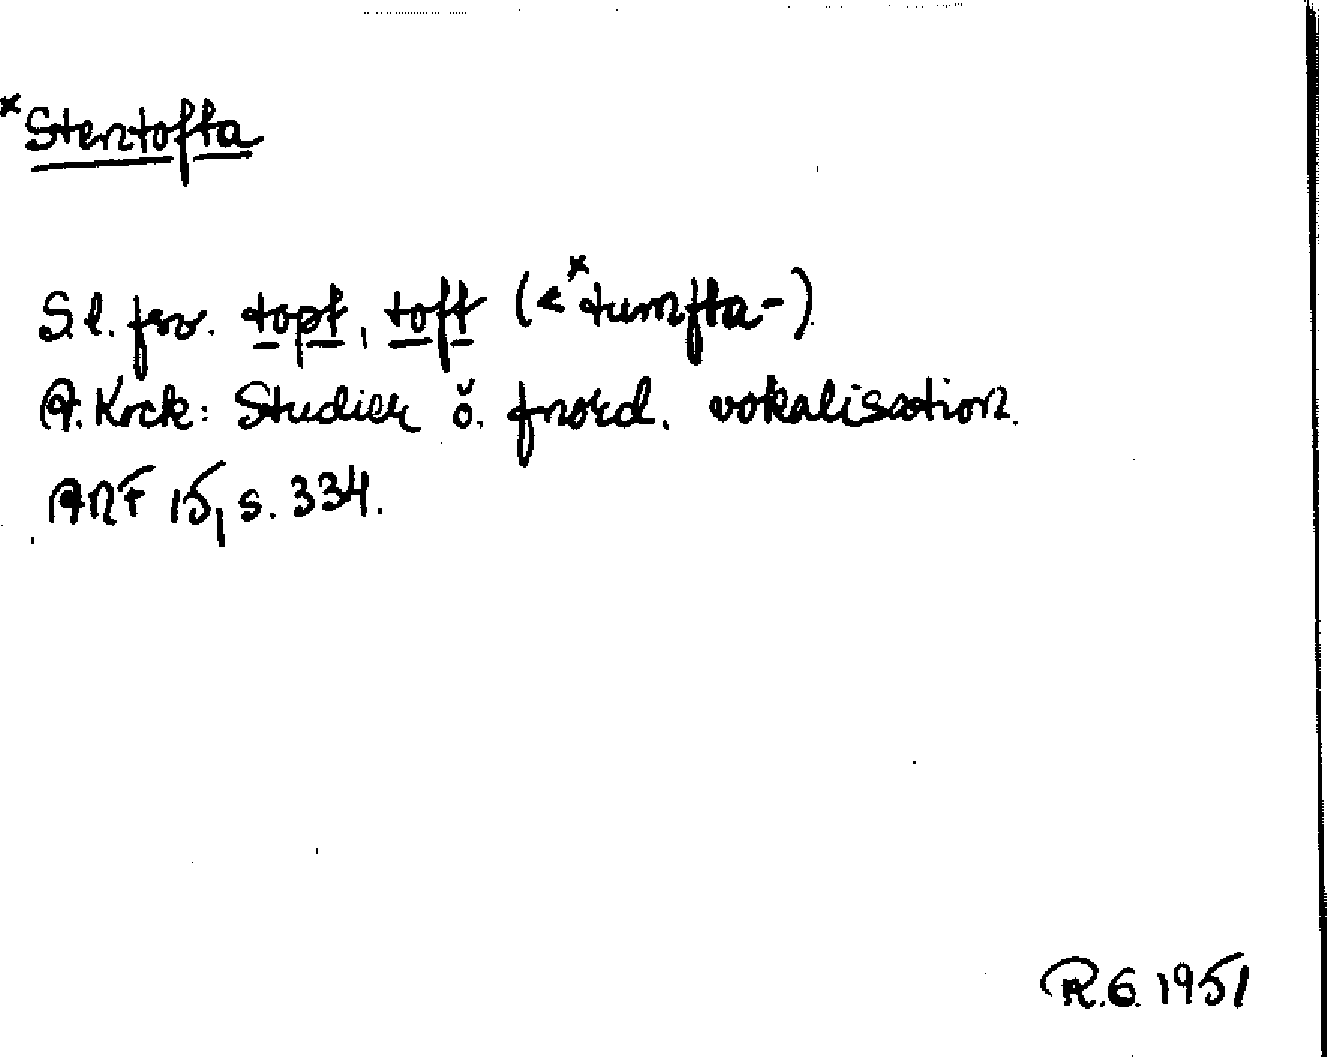 *Stentofta
S.l. fsv. topt, toft (<*tumfta-)
A. Kock: Studier ö. fnord. vokalisation.
ANF 15, s. 334.
R.G. 1951